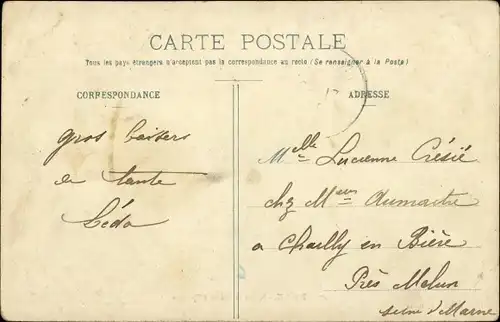 CARTE POSTALE
Tous les pays étrangers n'acceptent pas la correspondance au recto (Se renseigner à la Poste)
CORRESPONDANCE
ADRESSE
gros baisers
de tante
Léda
Melle Lucienne Crésié
chez Mme Aumaitre
a Chailly en Bière
Près Melun
Seine & Marne